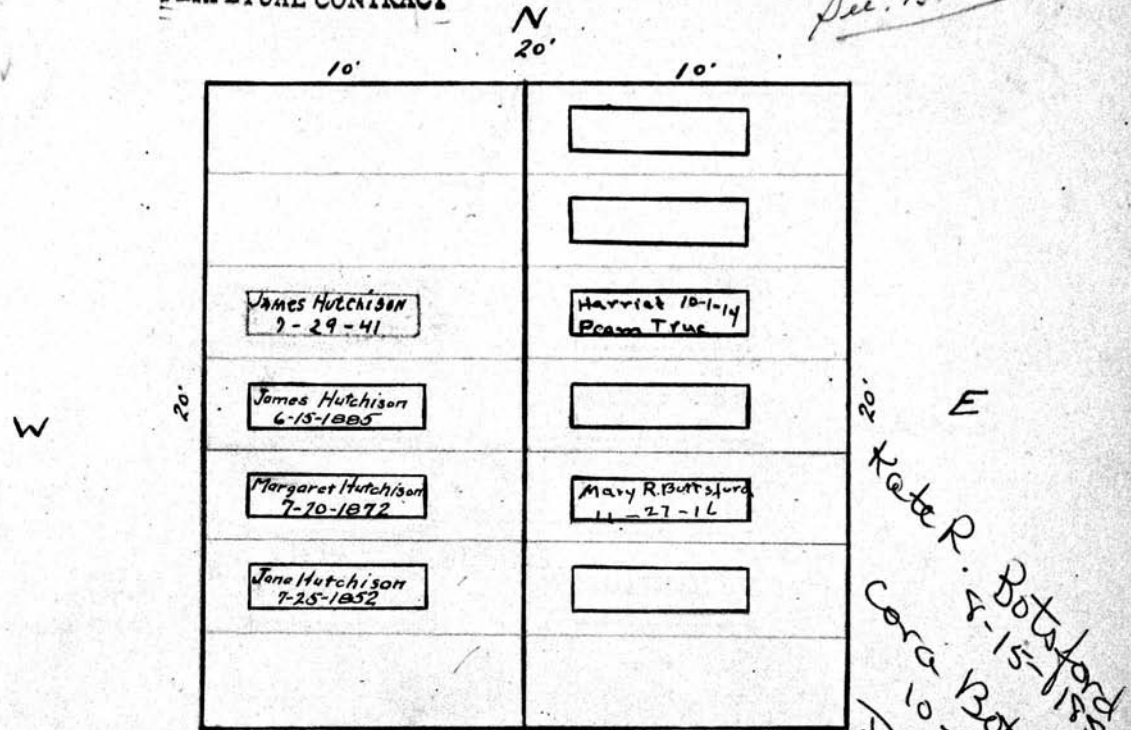 PERPETUAL CONTRACT
N
20'
10'
10'
James Hutchison
7-29-41
Harriet 10-1-14
True
20'
James Hutchison
6-15-1885
20'
E
W
Margaret Hutchison
7-20-1872
Mary R. Buttsford
11-27-16
Jane Hutchison
7-25-1852
Kate R. Botsford
8-15-
Cora
10-